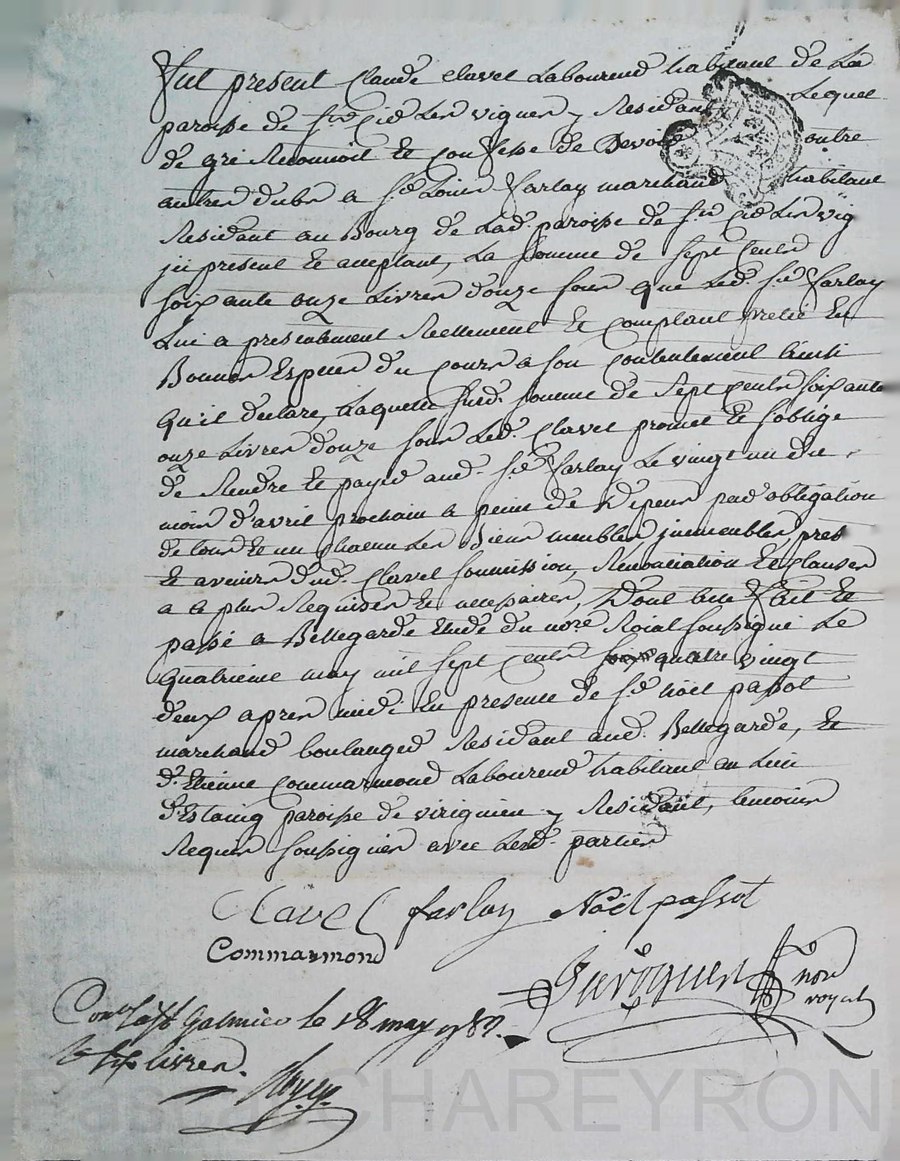 Fut present Claude Clavel Laboureur habitant de La
paroisse de St Cir Les vignes y Residant Lequel
de gré Reconnoit Et Confesse de Devoir outre
autres dubs a Sr Louis Farlay marchand habitant
Residant au Bourg de Lad. paroisse de St Cir Les vig
ici present Et acceptant, La somme de Sept Cents
soixante onze Livres douze sous que Led. Sr Farlay
Lui a presentement Reellement Et Comptant preté En
Bonnes Especes du Cours a son Contentement ainsi
qu'il declare, Laquelle susd. somme de Sept Cents soixante
onze Livres douze sous Led. Clavel promet Et s'oblige
de Rendre Et payer aud. Sr Farlay Le vingt un du
mois d'avril prochain a peine de Depens par obligation
de tous Et un chacun Les Biens meubles, immeubles, pres
Et avenirs dud. Clavel soumission, Renonciation Et clauses
a ce plus Requises Et necessaires, Dont acte Fait Et
passé a Bellegarde Etude du nore Roial soussigné Le
quatrieme may mil sept Cents quatre vingt
deux apres midi En presence de Sr Noel passot
marchand boulanger Residant aud. Bellegarde, Et
d'Etienne Commarmond Laboureur habitant au Lieu
d'Estaing paroisse de virignieu y Residant, temoins
Requis soussignés avec Lesd. parties
Clavel farlay Noël passot
Commarmond
nore
royal
Conlé a St Galmier le 18 may 1782.
six livres.
CHAREYRON